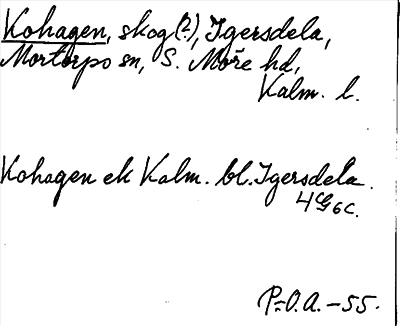 Kohagen, skog(?), Igersdela,
Mortorp sn, S. Möre hd,
Kalm. l.
Kohagen ek Kalm. bl. Igersdela.
4G6c.
P.O.A. -55.